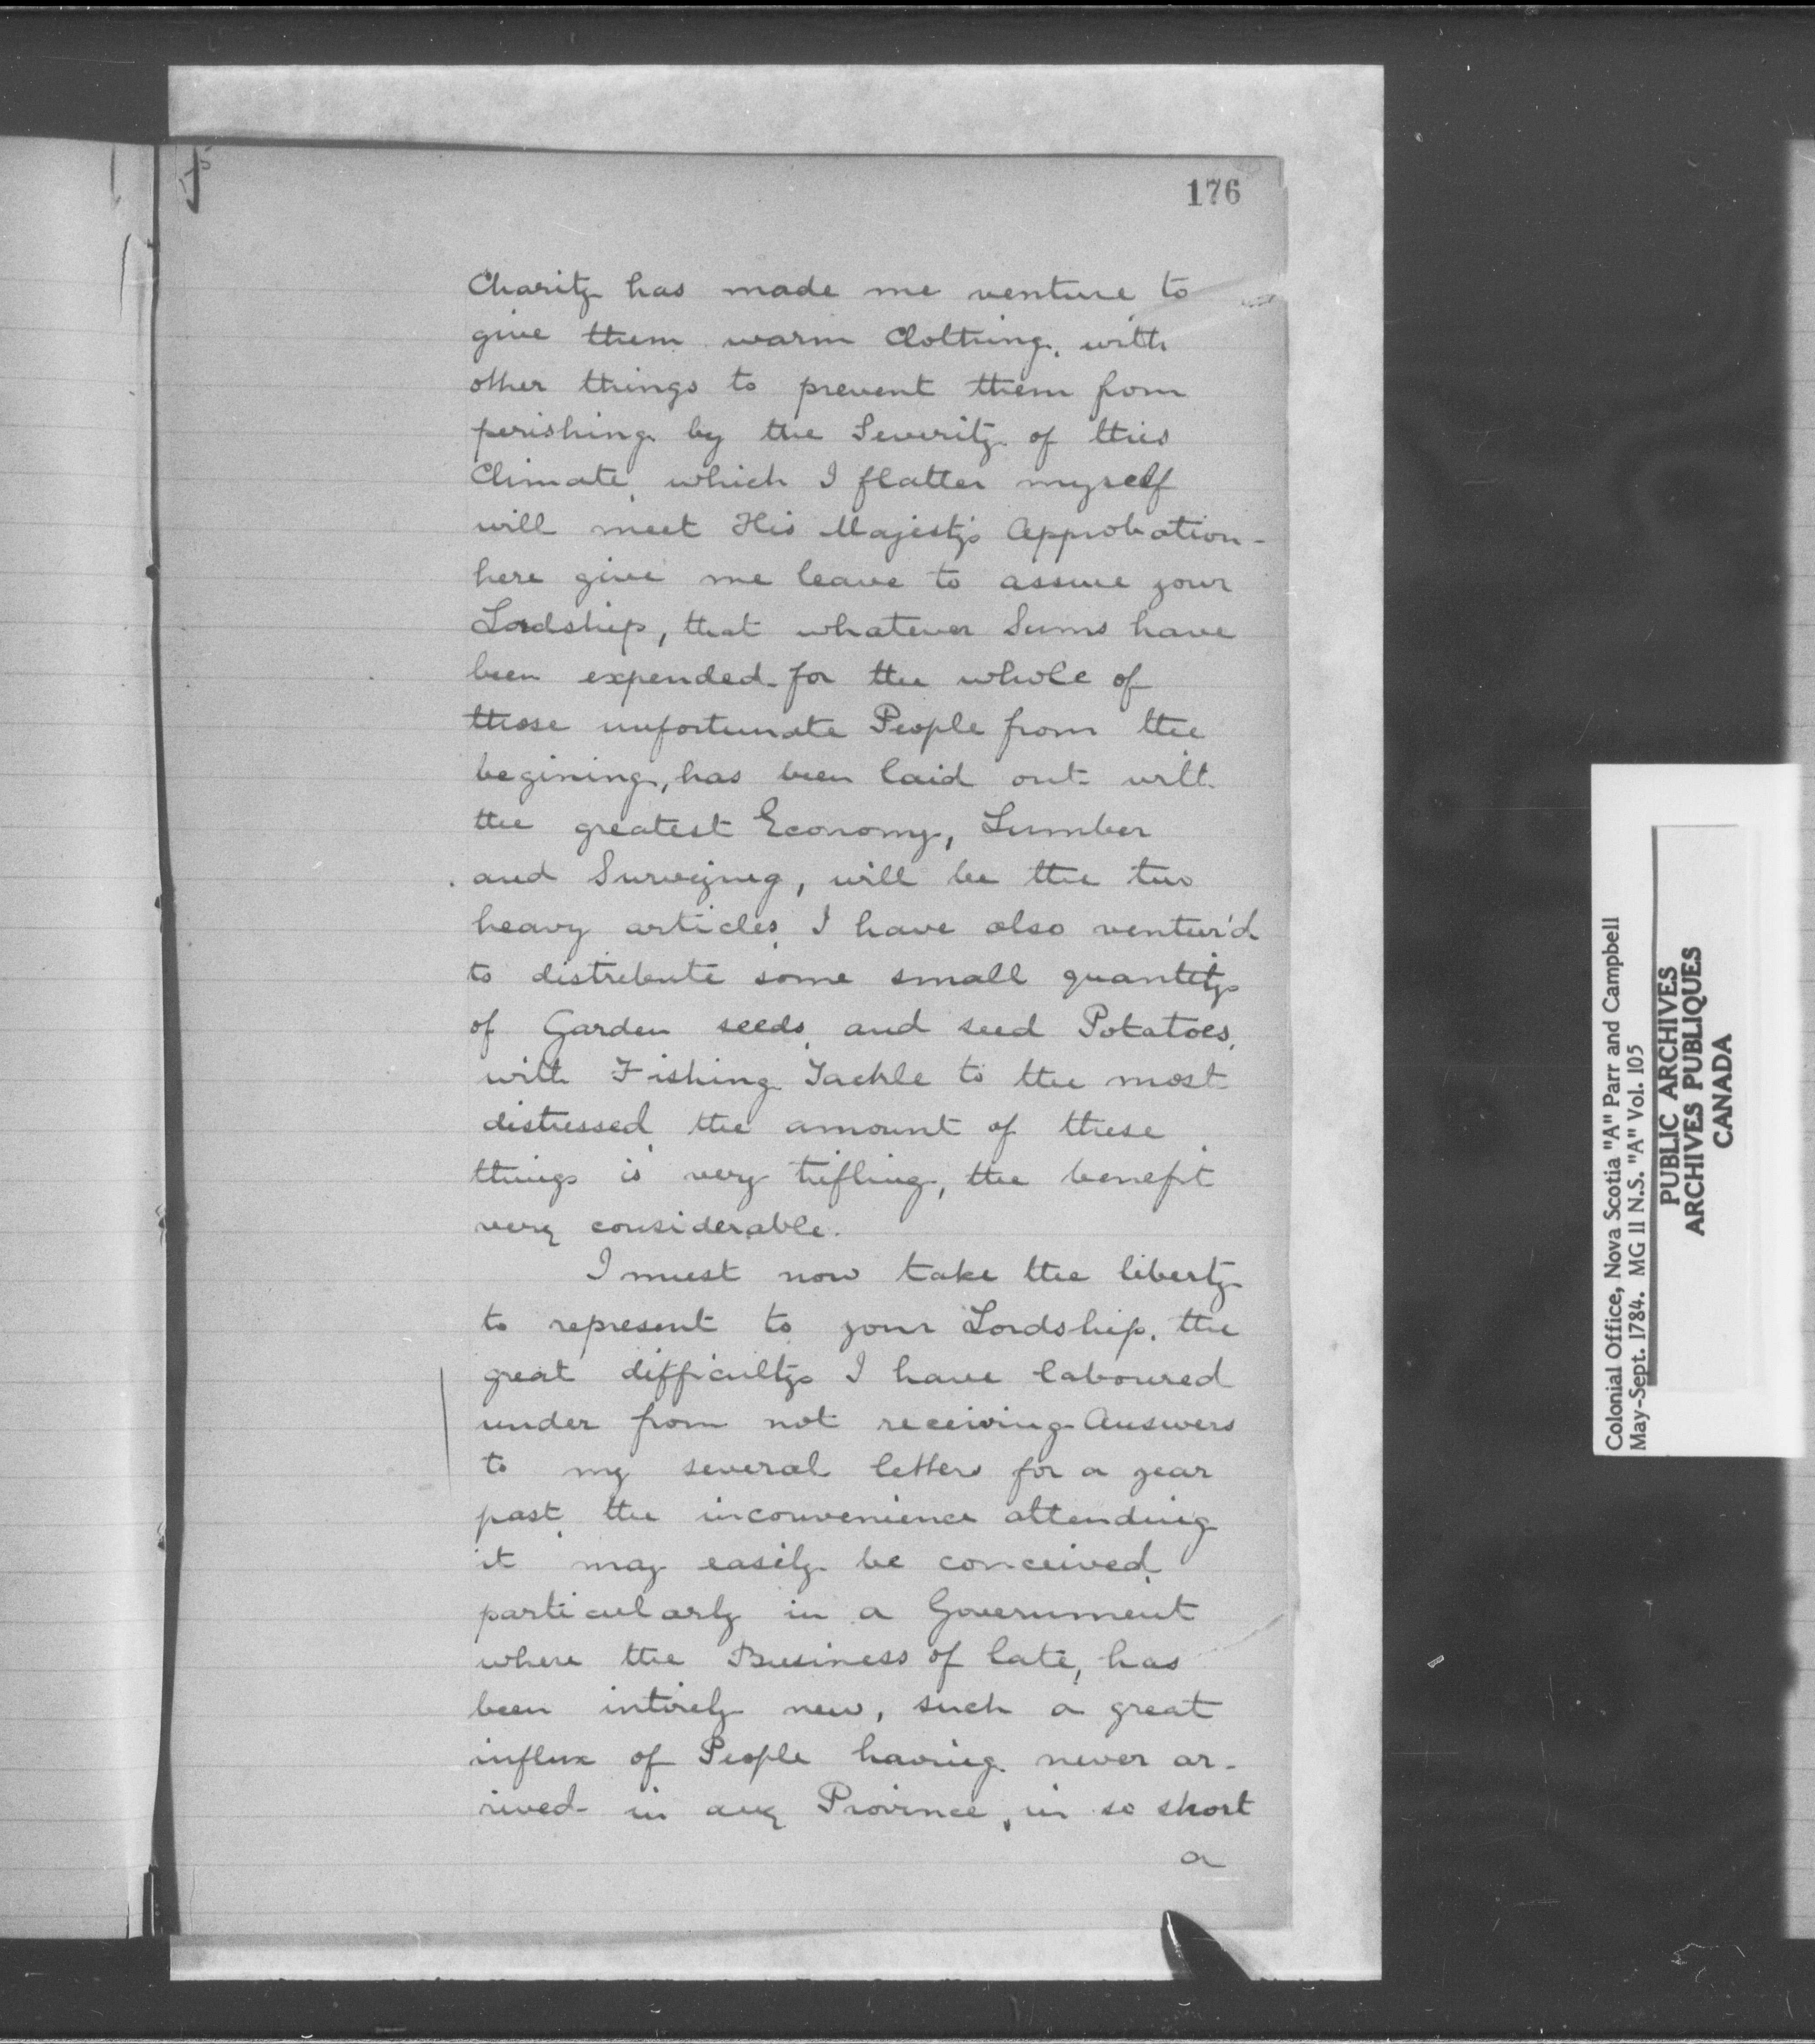 176
Charity has made me venture to
give them warm Clothing, with
other things to prevent them from
perishing by the Severity of this
Climate, which I flatter myself
will meet His Majesty's Approbation -
here give me leave to assure your
Lordship, that whatever Sums have
been expended for the whole of
those unfortunate People from the
begining, has been laid out with
the greatest Economy, Lumber
and Surveying, will be the two
heavy articles, I have also ventur'd
to distribute some small quantitys
of Garden seeds, and seed Potatoes,
with Fishing Tackle to the most
distressed, the amount of these
things is very trifling, the benefit
very considerable.
I must now take the liberty
to represent to your Lordship, the
great difficultys I have laboured
under from not receiving Answers
to my several letters for a year
past, the inconvenience attending
it may easily be conceived,
particularly in a Government
where the Business of late, has
been intirely new, such a great
influx of People having never ar-
rived in any Province, in so short
a
Colonial Office, Nova Scotia "A" Parr and Campbell
May-Sept. 1784. MG 11 N.S. "A" Vol. 105
PUBLIC ARCHIVES
ARCHIVES PUBLIQUES
CANADA